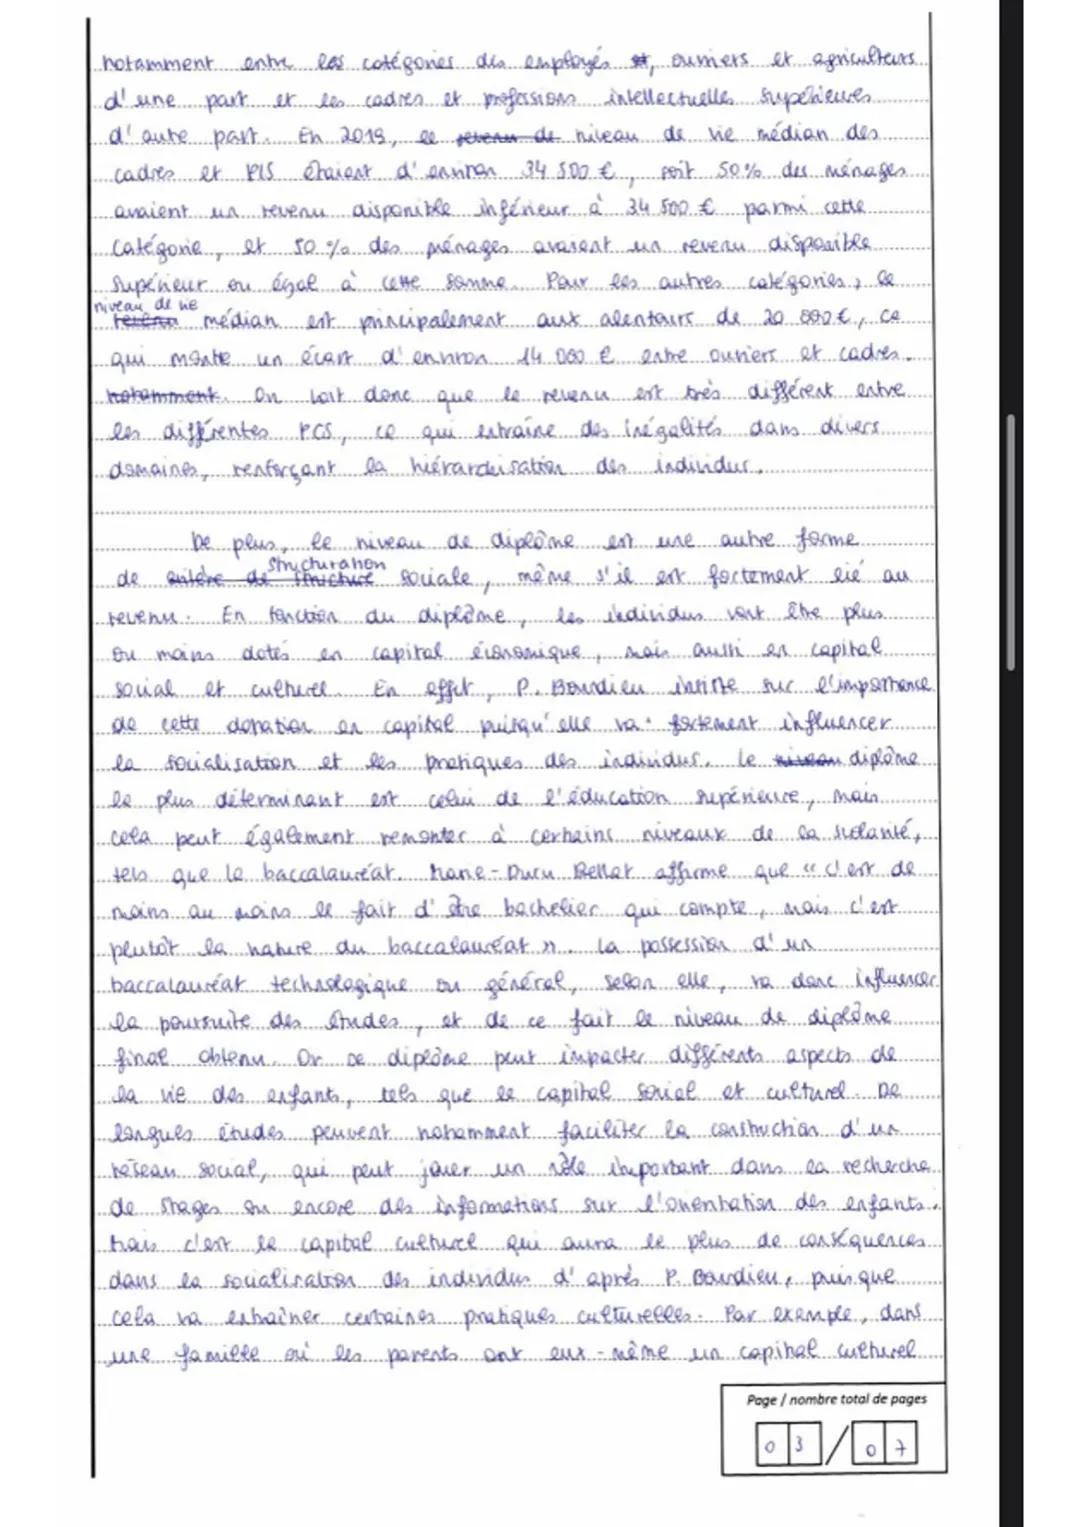 notamment entre les catégories des employés, ouvriers et agriculteurs
d'une part et les cadres et professions intellectuelles supérieures
d'autre part. En 2019, le revenu de niveau de vie médian des
cadres et PIS étaient d'environ 34 500 €, soit 50% des ménages
avaient un revenu disponible inférieur à 34 500 € parmi cette
catégorie, et 50 % des ménages avaient un revenu disponible
supérieur ou égal à cette somme. Pour les autres catégories, le
niveau de vie
revenu médian est principalement aux alentours de 20 000 €, ce
qui montre un écart d'environ 14 000 € entre ouvriers et cadres.
notamment. On voit donc que le revenu est très différent entre
les différentes PCS, ce qui entraîne des inégalités dans divers
domaines, renforçant la hiérarchisation des individus.
De plus, le niveau de diplôme est une autre forme
structuration
de critère de structure sociale, même s'il est fortement lié au
revenu. En fonction du diplôme, les individus vont être plus
ou moins dotés en capital économique, mais aussi en capital
social et culturel. En effet, P. Bourdieu insiste sur l'importance
de cette dotation en capital puisqu'elle va fortement influencer
la socialisation et les pratiques des individus. Le niveau diplôme
le plus déterminant est celui de l'éducation supérieure, mais
cela peut également remonter à certains niveaux de la scolarité,
tels que le baccalauréat. Marie-Duru Bellat affirme que « c'est de
moins au moins le fait d'être bachelier qui compte, mais c'est
plutôt la nature du baccalauréat ». La possession d'un
baccalauréat technologique ou général, selon elle, va donc influencer
la poursuite des études, et de ce fait le niveau de diplôme
final obtenu. Or ce diplôme peut impacter différents aspects de
la vie des enfants, tels que le capital social et culturel. De
longues études peuvent notamment faciliter la construction d'un
réseau social, qui peut jouer un rôle important dans la recherche
de stages ou encore des informations sur l'orientation des enfants.
Mais c'est le capital culturel qui aura le plus de conséquences
dans la socialisation des individus d'après P. Bourdieu, puisque
cela va entraîner certaines pratiques culturelles. Par exemple, dans
une famille où les parents ont eux-même un capital culturel
Page / nombre total de pages
03/07